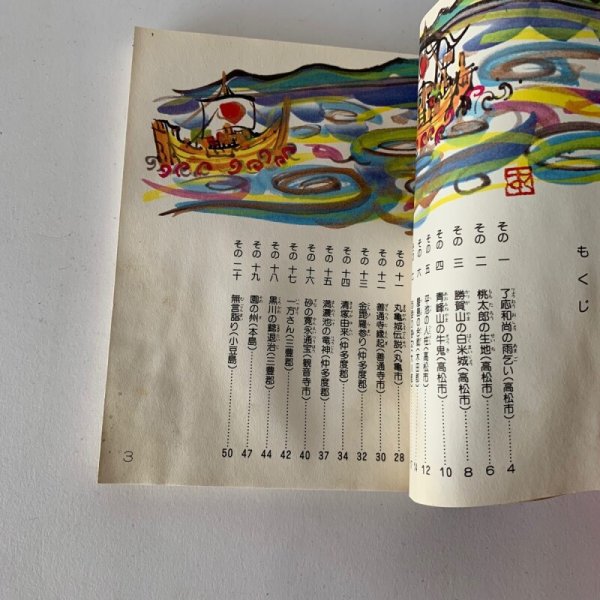 もくじ
その一 了応和尚の雨乞い(高松市) 4
その二 桃太郎の生地(高松市) 6
その三 勝賀山の白米城(高松市) 8
その四 青峰山の牛鬼(高松市) 10
その五 平池の人柱(高松市) 12
その六
その十一 丸亀城伝説(丸亀市) 28
その十二 善通寺縁起(善通寺市) 30
その十三 金毘羅参り(仲多度郡) 32
その十四 清塚由来(仲多度郡) 34
その十五 満濃池の竜神(仲多度郡) 37
その十六 砂の寛永通宝(観音寺市) 40
その十七 一方さん(三豊郡) 42
その十八 黒川の 退治(三豊郡) 44
その十九 園の州(本島) 47
その二十 無言 り(小豆島) 50
3